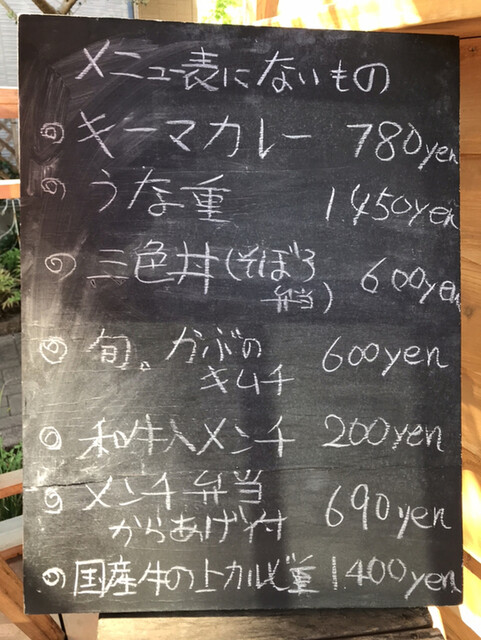 メニュー表にないもの
◎ キーマカレー 780yen
◎ うな重 1.450yen
◎ 三色丼(そぼろ 600yen
弁当)
◎ 旬。かぶの 600yen
キムチ
◎ 和牛入メンチ 200yen
◎ メンチ弁当 690yen
からあげ付
◎ 国産牛の上カルビ重 1.400yen